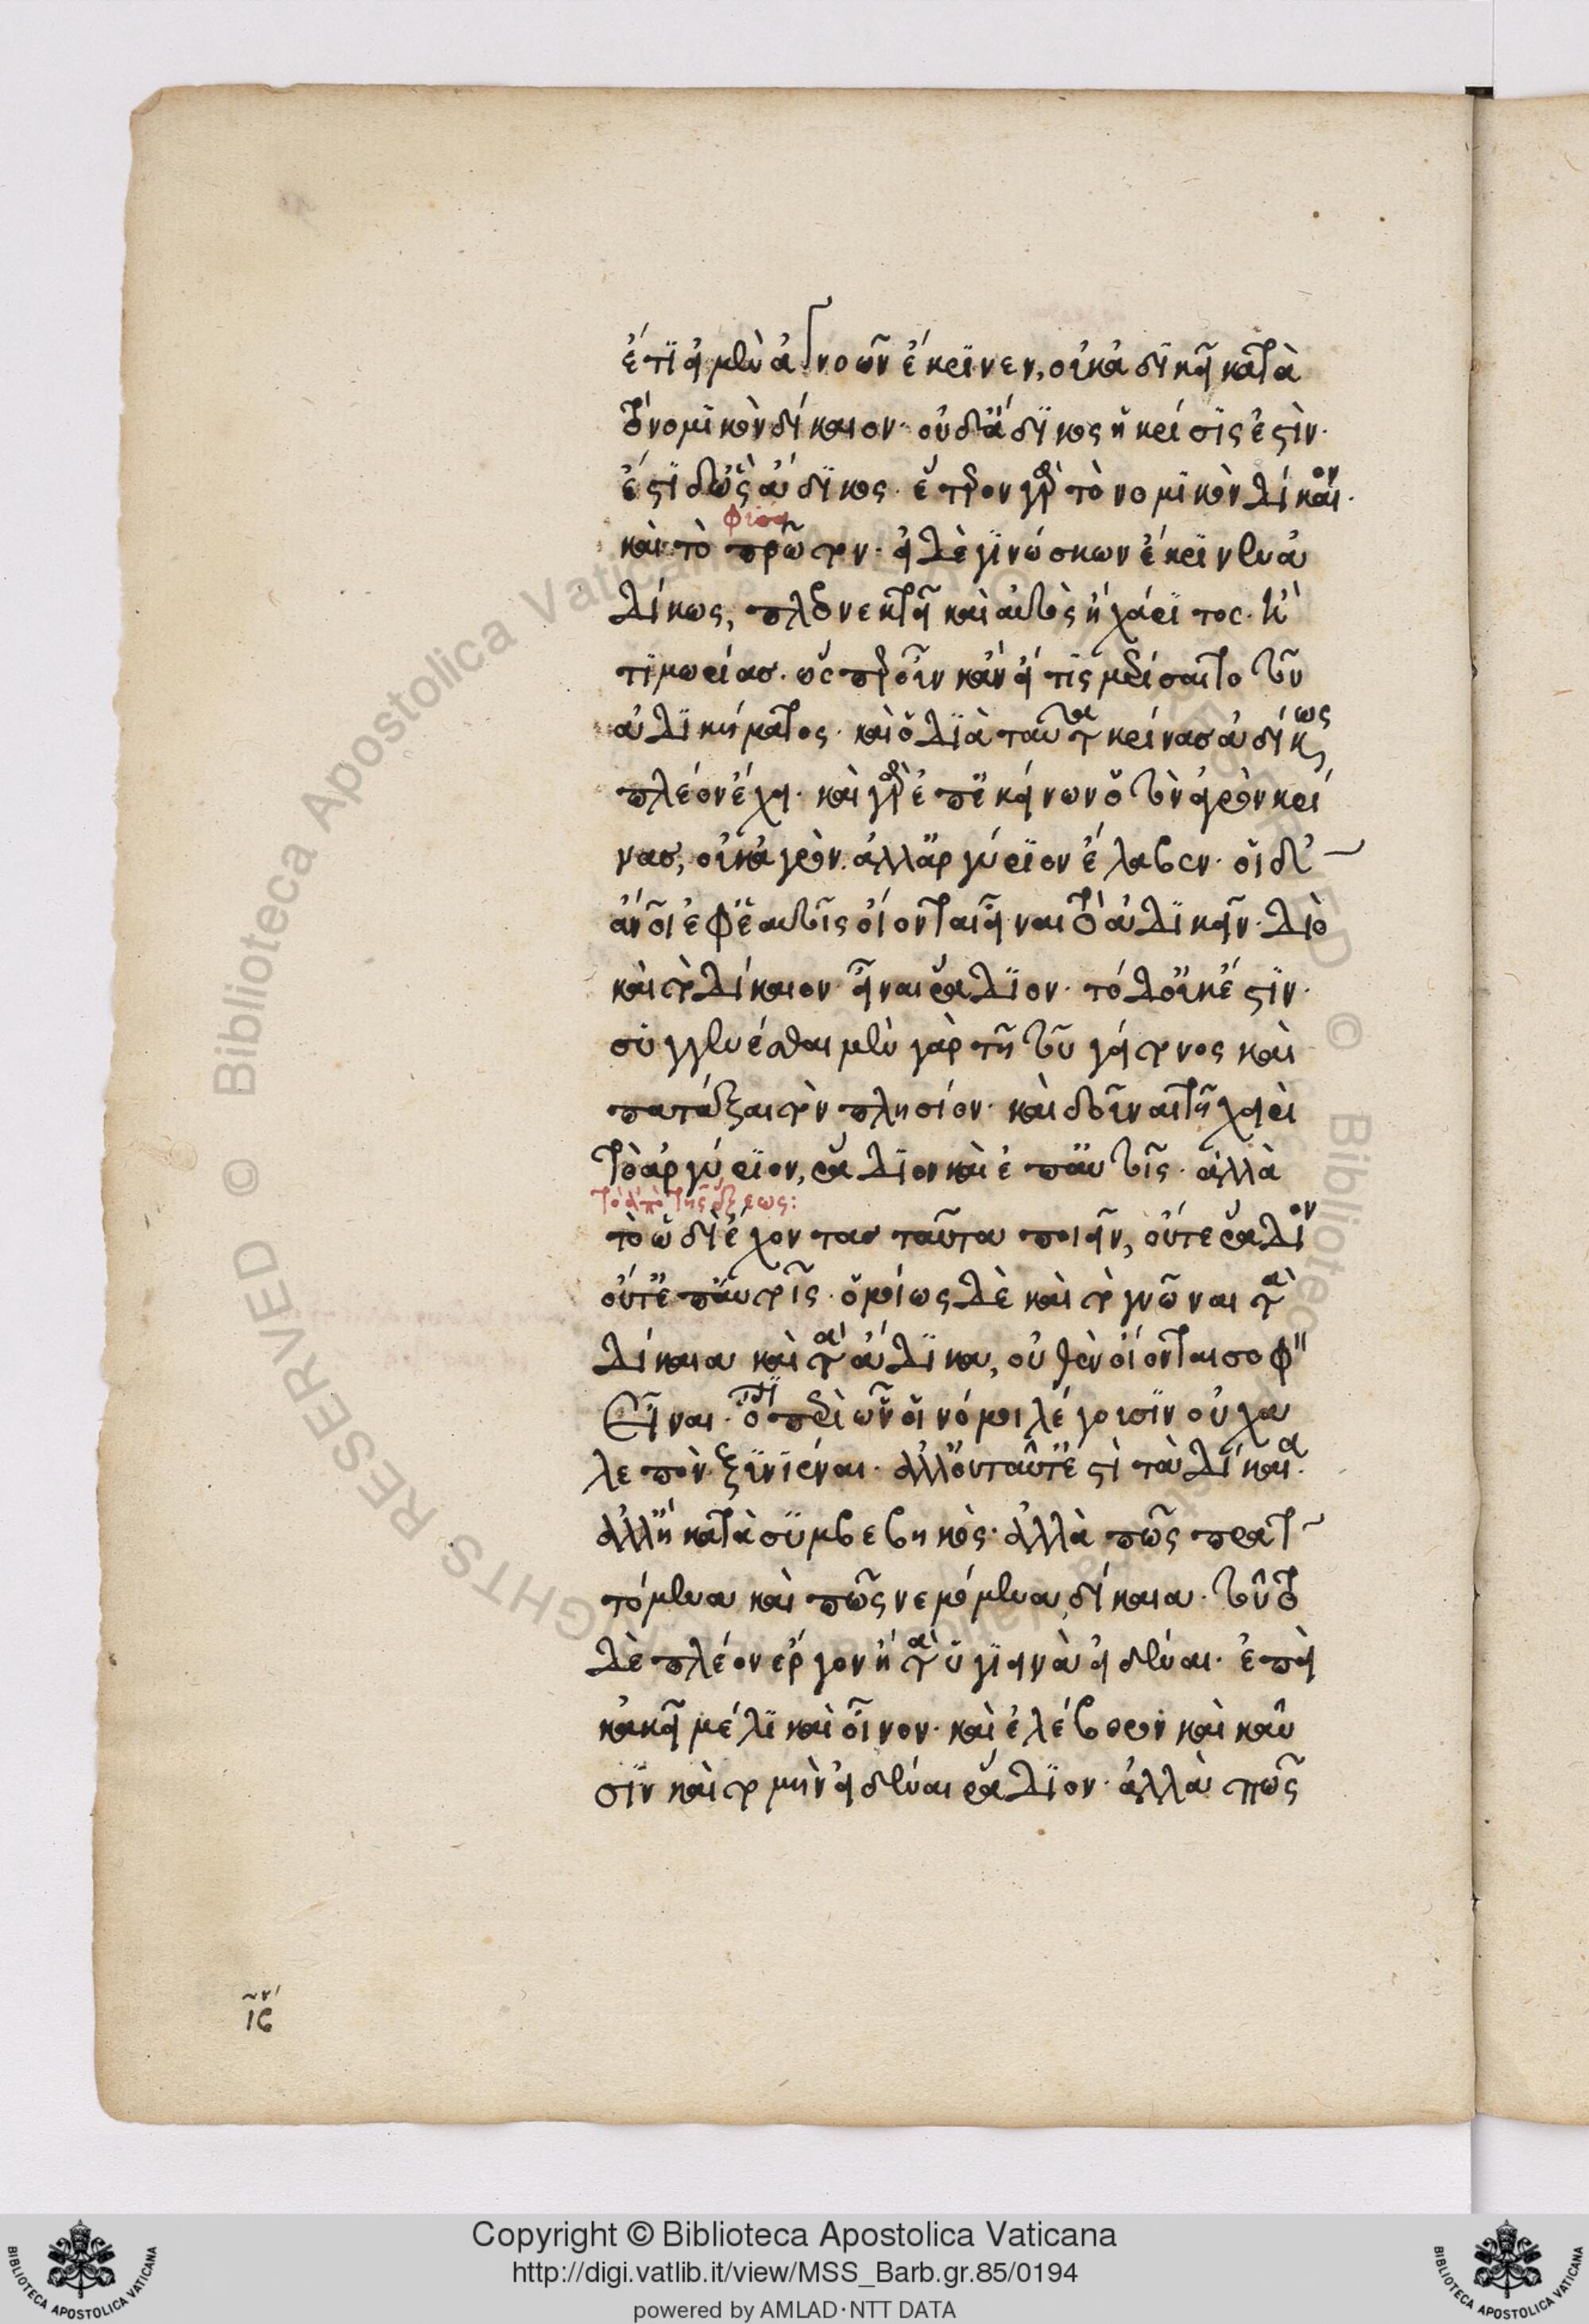 ἔτι εἰ μὲν ἀγνοῶν ἔκρινεν, οὐκ ἀδικεῖ κατὰ
τὸ νομικὸν δίκαιον· οὐδ' ἄδικος ἡ κρίσις ἐστίν·
ἔστι δ' ὡς ἄδικος· ἕτερον γὰρ τὸ νομικὸν δίκαιον·
φυσει
καὶ τὸ πρῶτον· εἰ δὲ γινώσκων ἔκρινεν ἀ
δίκως, πλεονεκτεῖ καὶ αὐτὸς ἢ χάριτος· ἢ
τιμωρίας· ὥσπερ οὖν κἂν εἴ τις μερίσαιτο τοῦ
ἀδικήματος· καὶ ὁ διὰ ταῦτα κρίνας ἀδίκως
πλέον ἔχει· καὶ γὰρ ἐπ' ἐκείνων ὁ τὸν ἀγρὸν κρί
νας, οὐκ ἀγρὸν ἀλλ' ἀργύριον ἔλαβεν· οἱ δ'
ἄνθρωποι ἐφ' ἑαυτοῖς οἴονται εἶναι τὸ ἀδικεῖν· διὸ
καὶ τὸ δίκαιον εἶναι ῥᾴδιον· τὸ δ' οὐκ ἔστιν·
συγγενέσθαι μὲν γὰρ τῇ τοῦ γείτονος καὶ
πατάξαι τὸν πλησίον· καὶ δοῦναι τῇ χειρὶ
τὸ ἀργύριον, ῥᾴδιον καὶ ἐπ' αὐτοῖς· ἀλλὰ
τὸ ἀπὸ τῆς ἕξεως:
τὸ ὡδὶ ἔχοντας ταῦτα ποιεῖν, οὔτε ῥᾴδιον
οὔτ' ἐπ' αὐτοῖς· ὁμοίως δὲ καὶ τὸ γνῶναι τὰ
δίκαια καὶ τὰ ἄδικα, οὐθὲν οἴονται σοφὸν
εἶναι· ὅτι περὶ ὧν οἱ νόμοι λέγουσιν οὐ χα
λεπὸν ξυνιέναι· ἀλλ' οὐ ταῦτ' ἐστὶ τὰ δίκαια·
ἀλλ' ἢ κατὰ συμβεβηκός· ἀλλὰ πῶς πρατ
τόμενα καὶ πῶς νεμόμενα δίκαια· τοῦτο
δὲ πλέον ἔργον ἢ τὰ ὑγιεινὰ εἰδέναι· ἐπεὶ
κἀκεῖ μέλι καὶ οἶνον· καὶ ἐλέβορον καὶ καῦ
σιν καὶ τομὴν εἰδέναι ῥᾴδιον· ἀλλὰ πῶς
ιϛ
Copyright © Biblioteca Apostolica Vaticana
http://digi.vatlib.it/view/MSS_Barb.gr.85/0194
powered by AMLAD·NTT DATA